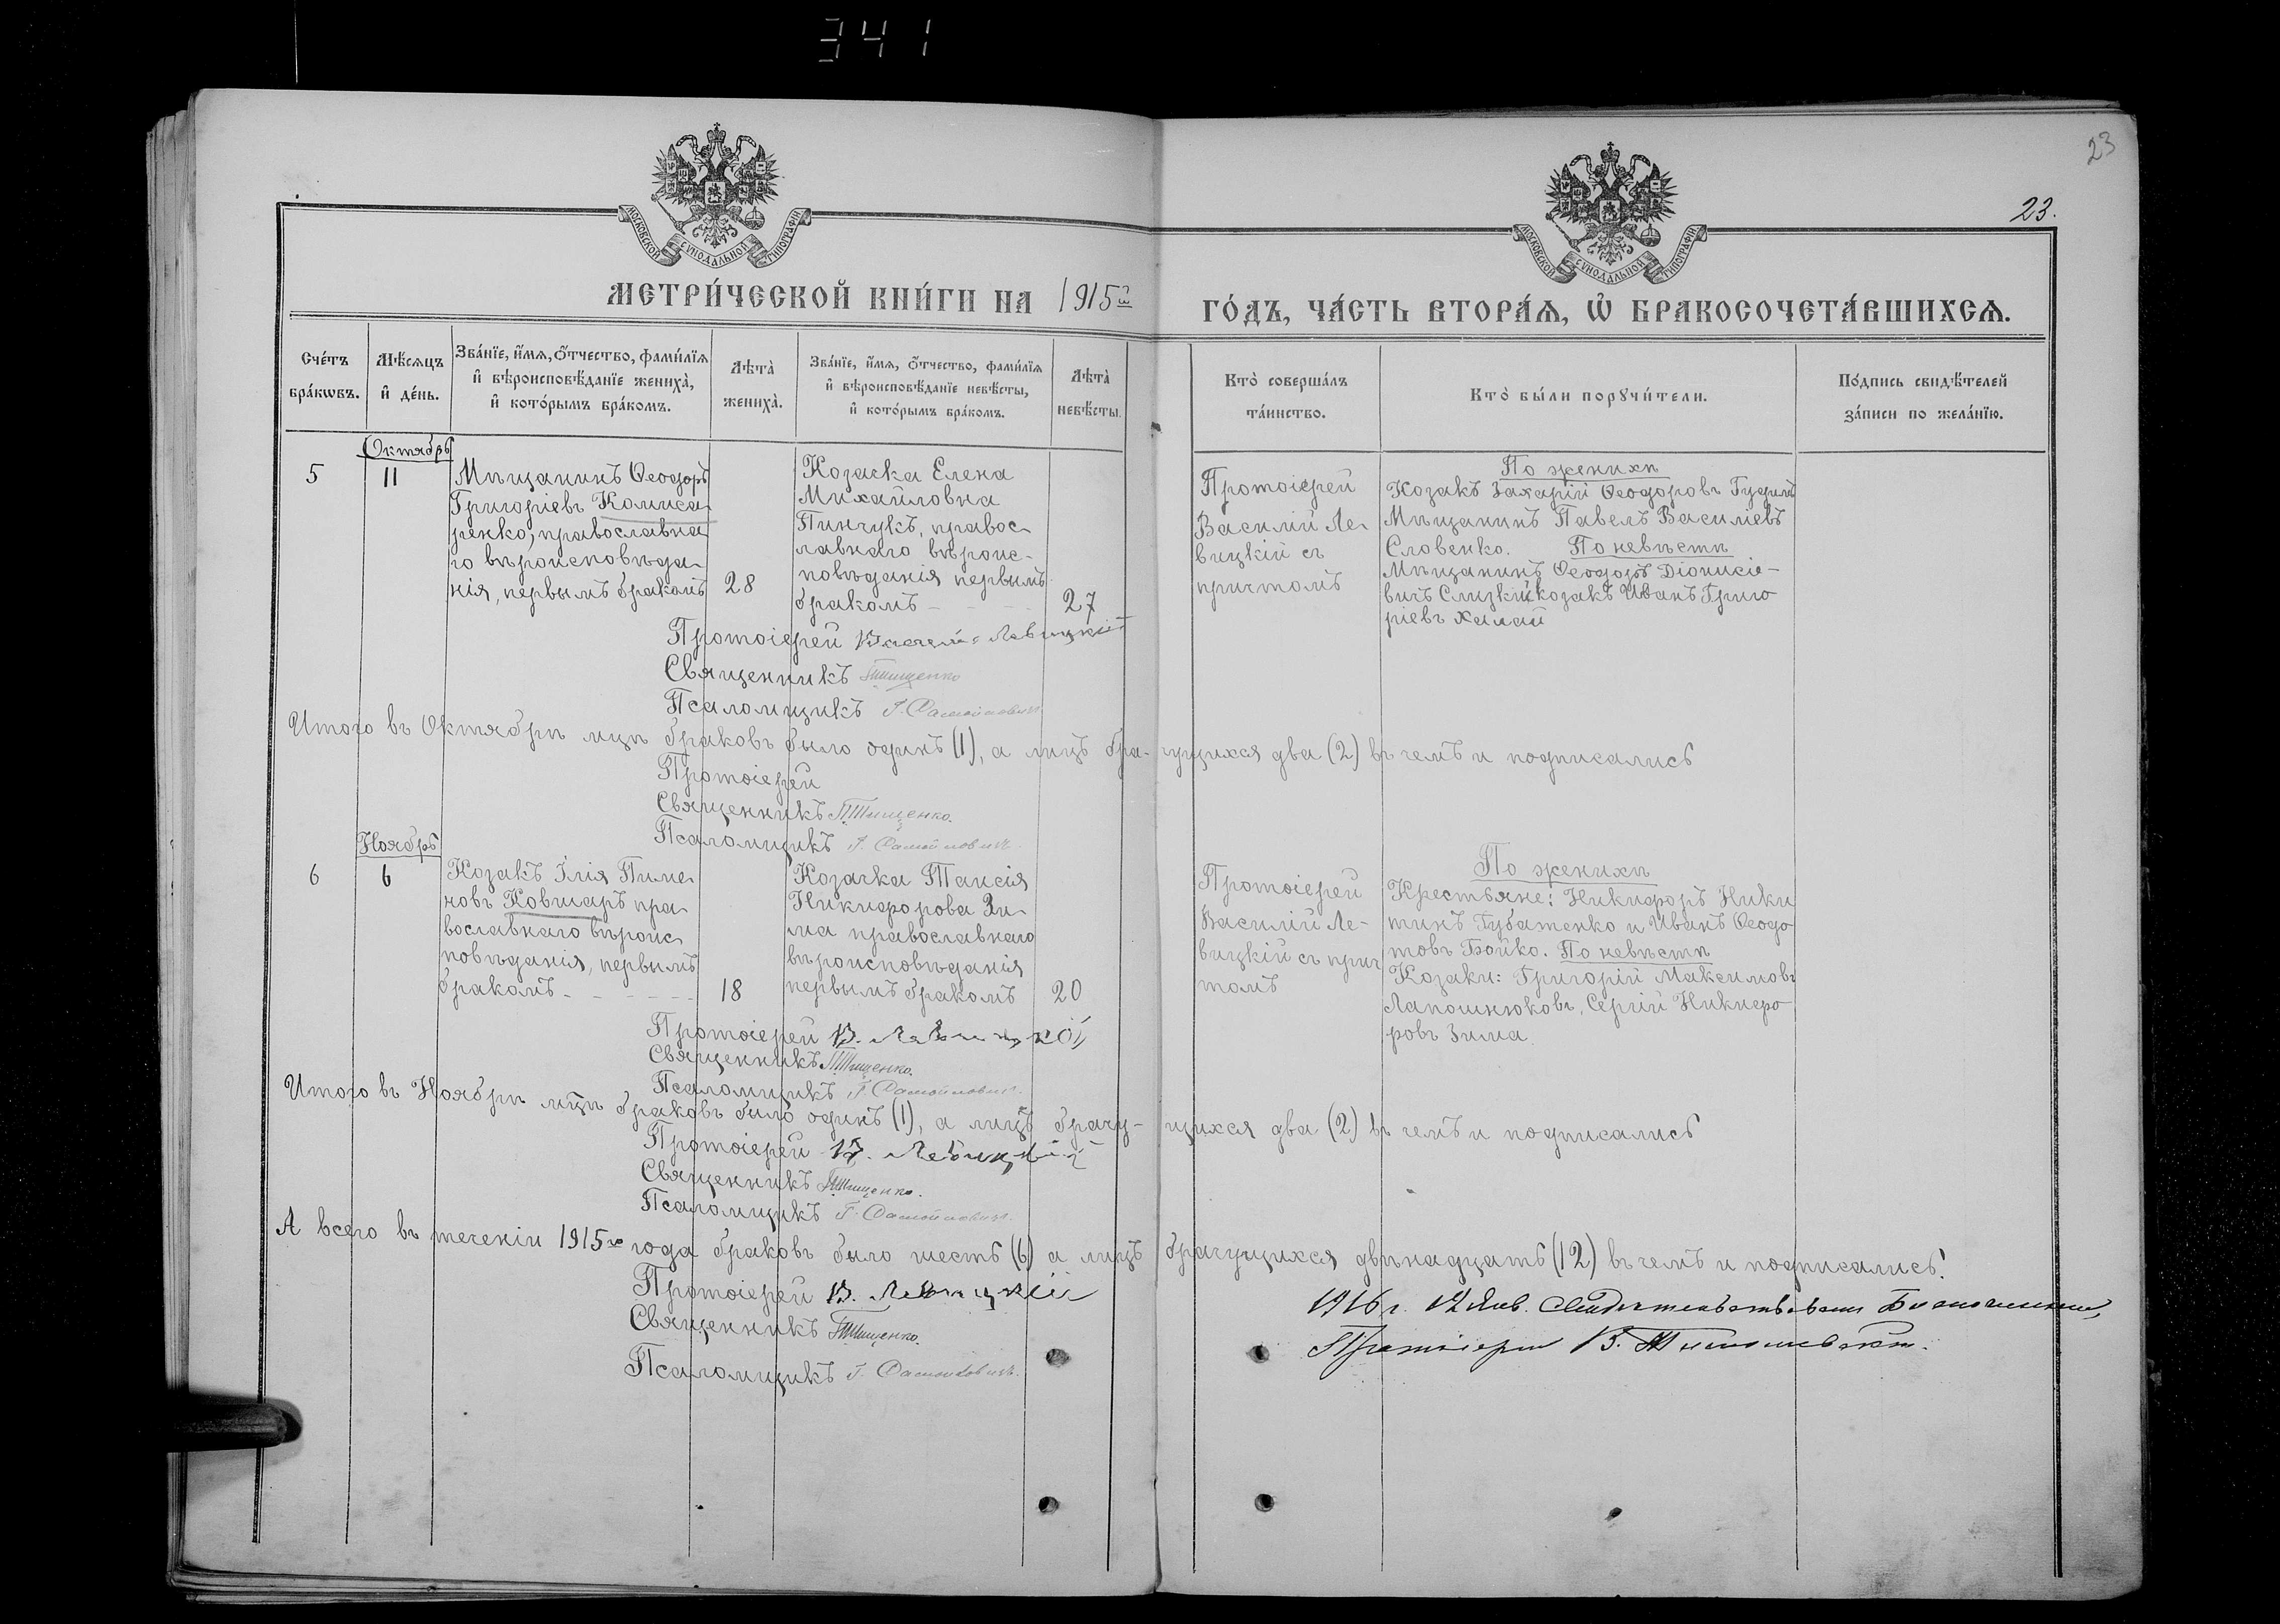 341
23
23.
МОСКОВСКОЙ СУНОДАЛЬНОЙ ТИПОГРАФІИ
МОСКОВСКОЙ СУНОДАЛЬНОЙ ТИПОГРАФІИ
МЕТРИ́ЧЕСКОЙ КНИ́ГИ НА 1915й ГО́ДЪ, ЧА́СТЬ ВТОРА́Ѧ, Ѡ БРАКОСОЧЕТА́ВШИХСѦ.
Сче́тъ
бра́кѡвъ.
Мѣ́сѧцъ
и҆ де́нь.
Зва́нїе, и҆́мѧ, ѻ҆́тчество, фами́лїѧ
и҆ вѣроисповѣ́данїе жениха̀,
и҆ кото́рымъ бра́комъ.
Лѣта̀
жениха̀.
Зва́нїе, и҆́мѧ, ѻ҆́тчество, фами́лїѧ
и҆ вѣроисповѣ́данїе невѣ́сты,
и҆ кото́рымъ бра́комъ.
Лѣта̀
невѣ́сты.
Кто̀ соверша́лъ
та́инство.
Кто̀ бы́ли порꙋчи́тели.
По́дпись свидѣ́телей
за́писи по жела́нїю.
Октябрь
5
11
Мѣщанинъ Ѳеодоръ
Григоріевъ Комиса-
ренко, православна-
го вѣроисповѣда-
нія, первымъ бракомъ
28
Козачка Елена
Михайловна
Пинчукъ, правос-
лавнаго вѣроис-
повѣданія первымъ
бракомъ - - -
27
Протоіерей
Василій Ле-
вицкій съ
причтомъ
По женихѣ
Козакъ Захарій Ѳеодоровъ Гудимъ
Мѣщанинъ Павелъ Василіевъ
Словенко. По невѣстѣ
Мѣщанинъ Ѳеодоръ Діонисіе-
вичъ Слизкій козакъ Иванъ Григо
ріевъ Халай
Протоіерей Василій Левицкій
Священникъ Тищенко
Псаломщикъ Г. Самойловичъ
Итого въ Октябрѣ мцѣ браковъ было одинъ (1), а лицъ бра- чущихся два (2) въ чемъ и подписались
Протоіерей
Священникъ Тищенко.
Псаломщикъ Г. Самойловичъ
Ноябрь
6
6
Козакъ Ілія Пиме-
новъ Ковшаръ пра-
вославнаго вѣроис-
повѣданія, первымъ
бракомъ - - - - -
18
Козачка Таисія
Никифорова Зи-
ма православнаго
вѣроисповѣданія
первымъ бракомъ
20
Протоіерей
Василій Ле-
вицкій съ прич
томъ
По женихѣ
Крестьяне: Никифоръ Ники
тинъ Губатенко и Иванъ Ѳеодо
товъ Бойко. По невѣстѣ
Козаки: Григорій Максимовъ
Лапошнюковъ, Сергій Никифо
ровъ Зима.
Протоіерей В. Левицкій
Священникъ Тищенко.
Псаломщикъ Г. Самойловичъ
Итого въ Ноябрѣ мцѣ браковъ было одинъ (1), а лицъ брачу- щихся два (2) въ чемъ и подписались
Протоіерей В. Левицкій
Священникъ Тищенко.
Псаломщикъ Г. Самойловичъ
А всего въ теченіи 1915го года браковъ было шесть (6) а лицъ брачущихся двѣнадцать (12) въ чемъ и подписались:
Протоіерей В. Левицкій
Священникъ Тищенко.
Псаломщикъ Г. Самойловичъ
1916 г. 12 Янв. Благочинный,
Протоіерей В.